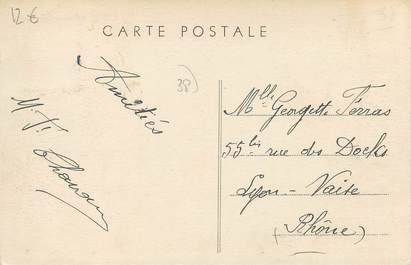 12 €
CARTE POSTALE
38
Amitiés
M. J. Chanau
Mlle Georgette Ferras
55 bis rue des Docks
Lyon - Vaise
(Rhône)